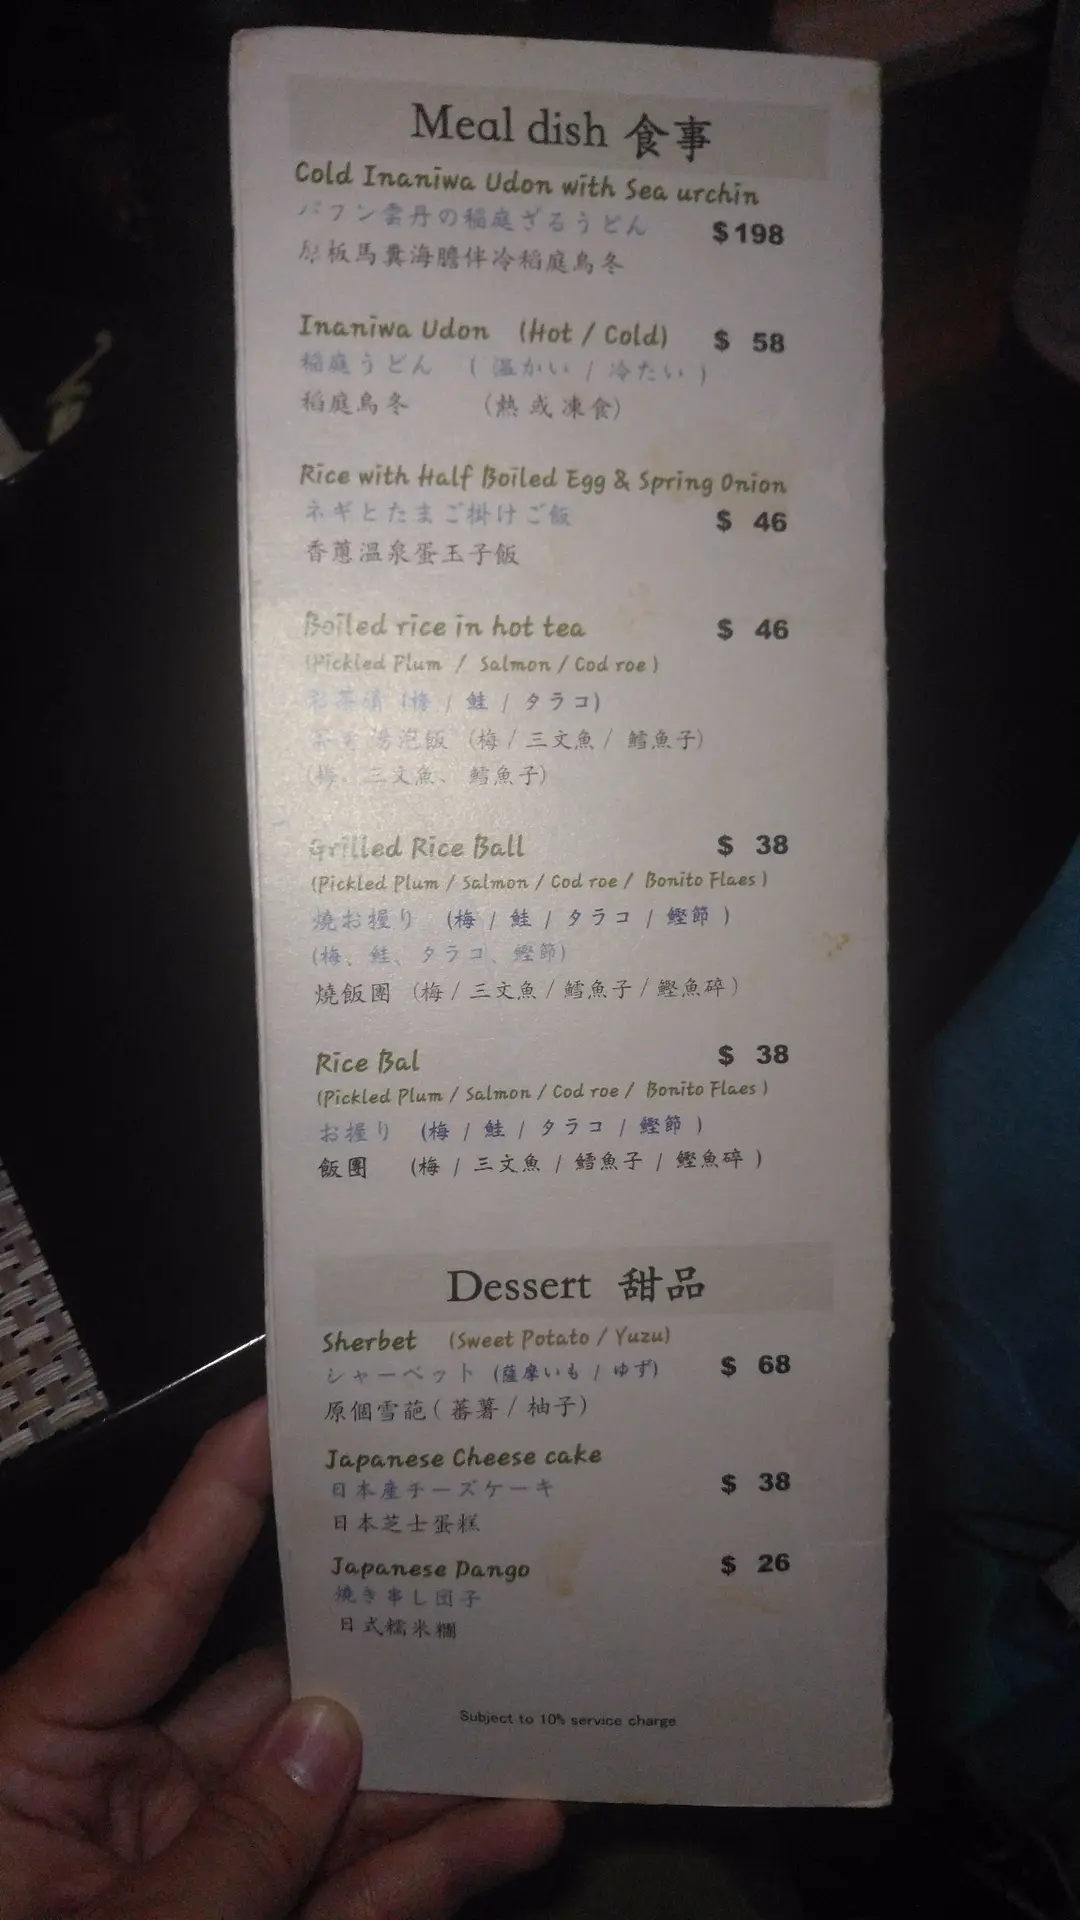 Meal dish 食事
Cold Inaniwa Udon with Sea urchin
バフン雲丹の稲庭ざるうどん
$198
板馬糞海膽伴冷稻庭烏冬
Inaniwa Udon (Hot / Cold) $ 58
稲庭うどん ( 温かい / 冷たい )
稻庭烏冬 (熱或凍食)
Rice with Half Boiled Egg & Spring Onion
ネギとたまご掛けご飯
$ 46
香蔥溫泉蛋玉子飯
Boiled rice in hot tea $ 46
(Pickled Plum / Salmon / Cod roe )
茶漬 (梅 / 鮭 / タラコ)
湯泡飯 (梅 / 三文魚 / 鱈魚子)
(梅、三文魚、鱈魚子)
Grilled Rice Ball $ 38
(Pickled Plum / Salmon / Cod roe / Bonito Flaes )
燒お握り (梅 / 鮭 / タラコ / 鰹節 )
(梅、鮭、タラコ、鰹節)
燒飯團 (梅 / 三文魚 / 鱈魚子 / 鰹魚碎 )
Rice Bal $ 38
(Pickled Plum / Salmon / Cod roe / Bonito Flaes )
お握り (梅 / 鮭 / タラコ / 鰹節 )
飯團 (梅 / 三文魚 / 鱈魚子 / 鰹魚碎 )
Dessert 甜品
Sherbet (Sweet Potato / Yuzu)
シャーベット (薩摩いも / ゆず) $ 68
原個雪葩( 蕃薯 / 柚子)
Japanese Cheese cake
日本産チーズケーキ $ 38
日本芝士蛋糕
Japanese Dango $ 26
焼き串し団子
日式糯米糰
Subject to 10% service charge